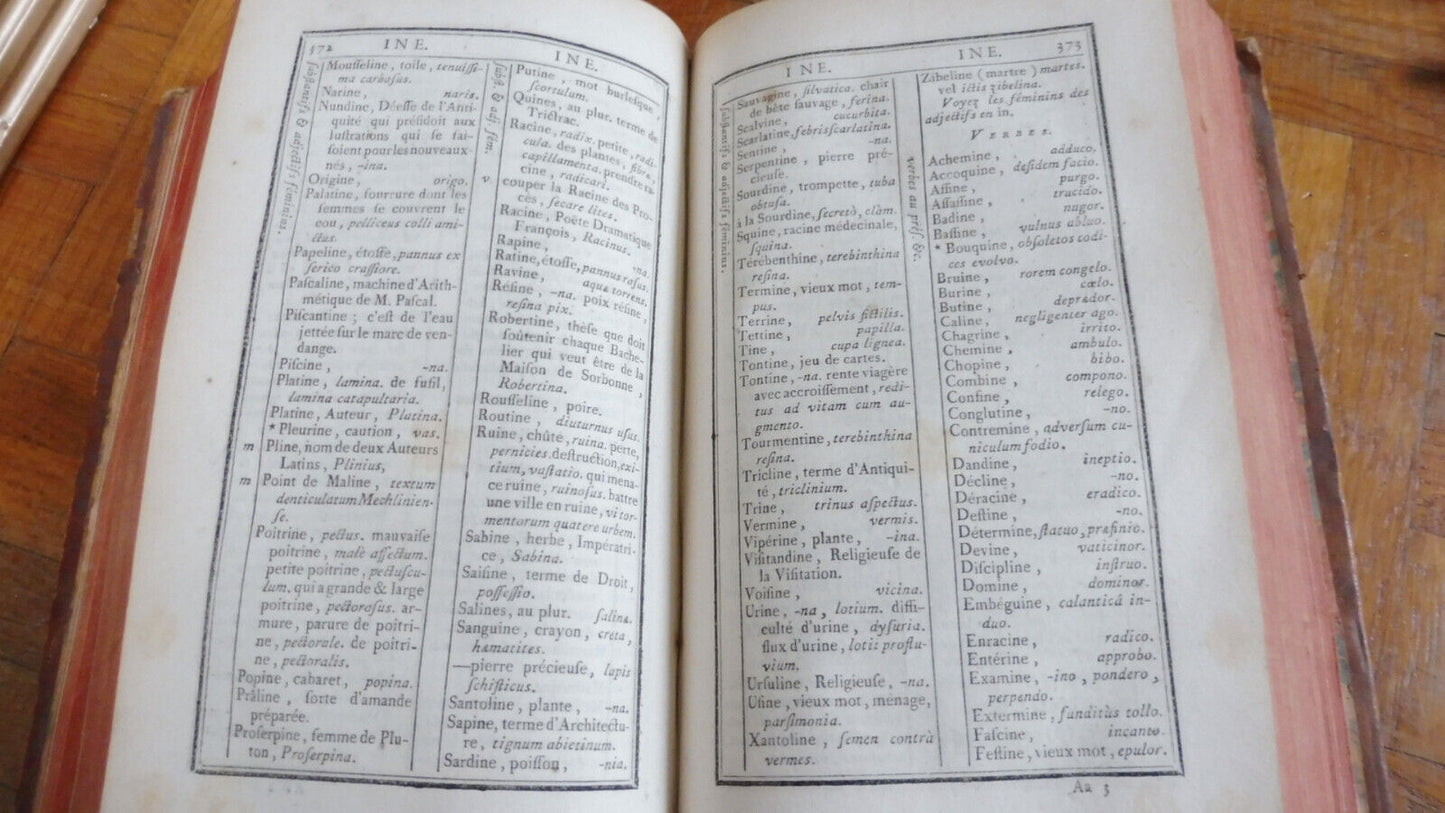 372 INE. INE.
ſubſtantifs & adjectifs féminins.
Mouſſeline, toile, tenuiſſi-
ma carbaſus.
Narine, naris.
Nundine, Déeſſe de l'Anti-
quité qui préſidoit aux
luſtrations qui ſe fai-
ſoient pour les nouveaux-
nés, -ina.
Origine, origo.
Palatine, fourrure dont les
femmes ſe couvrent le
cou, pelliceus colli ami-
ctus.
Papeline, étoffe, pannus ex
ſerico craſſiore.
Paſcaline, machine d'Arith-
métique de M. Paſcal.
Piſcantine; c'eſt de l'eau
jettée ſur le marc de ven-
dange.
Piſcine, -na.
Platine, lamina. de fuſil,
lamina catapultaria.
Platine, Auteur, Platina.
* Pleurine, caution, vas.
m Pline, nom de deux Auteurs
Latins, Plinius,
m Point de Maline, textum
denticulatum Mechlinien-
ſe.
Poitrine, pectus. mauvaiſe
poitrine, malè affectum.
petite poitrine, pectuſcu-
lum. qui a grande & large
poitrine, pectoroſus. ar-
mure, parure de poitri-
ne, pectorale. de poitri-
ne, pectoralis.
Popine, cabaret, popina.
Prâline, ſorte d'amande
préparée.
Proſerpine, femme de Plu-
ton, Proſerpina.
ſubſt. & adj. fém.
Putine, mot burleſque,
ſcortulum.
Quines, au plur. terme de
Trictrac.
Racine, radix. petite, radi-
cula. des plantes, fibræ,
capillamenta. prendre ra-
cine, radicari.
v. couper la Racine des Pro-
cès, ſecare lites.
Racine, Poëte Dramatique
François, Racinus.
Rapine, -na.
Ratine, étoffe, pannus raſus.
Ravine, aquæ torrens.
Réſine, -na. poix réſine,
reſina pix.
Robertine, thèſe que doit
ſoûtenir chaque Bache-
lier qui veut être de la
Maiſon de Sorbonne,
Robertina.
Rouſſeline, poire.
Routine, diuturnus uſus.
Ruine, chûte, ruina. perte,
pernicies. deſtruction, exi-
tium, vaſtatio. qui mena-
ce ruine, ruinoſus. battre
une ville en ruine, vi tor-
mentorum quatere urbem.
Sabine, herbe, Impératri-
ce, Sabina.
Saiſine, terme de Droit,
poſſeſſio.
Salines, au plur. ſalinæ.
Sanguine, crayon, creta,
hæmatites.
—pierre précieuſe, lapis
ſchiſticus.
Santoline, plante, -na.
Sapine, terme d'Architectu-
re, tignum abietinum.
Sardine, poiſſon, -nia.
INE. INE. 373
ſubſtantifs & adjectifs féminins.
Sauvagine, ſilvatica. chair
de bête ſauvage, ferina.
Scalvine, cucurbita.
Scarlatine, febris ſcarlatina.
Sentine, -na.
Serpentine, pierre pré-
cieuſe.
Sourdine, trompette, tuba
obtuſa.
à la Sourdine, ſecretò, clàm.
Squine, racine médecinale,
ſquina.
Térebenthine, terebinthina
reſina.
Termine, vieux mot, tem-
pus.
Terrine, pelvis fictilis.
Tettine, papilla.
Tine, cupa lignea.
Tontine, jeu de cartes.
Tontine, -na. rente viagère
avec accroiſſement, redi-
tus ad vitam cum au-
gmento.
Tourmentine, terebinthina
reſina.
Tricline, terme d'Antiqui-
té, triclinium.
Trine, trinus aſpectus.
Vermine, vermis.
Vipérine, plante, -ina.
Viſitandine, Religieuſe de
la Viſitation.
Voiſine, vicina.
Urine, -na, lotium. diffi-
culté d'urine, dyſuria.
flux d'urine, lotii proflu-
vium.
Urſuline, Religieuſe, -na.
Uſine, vieux mot, ménage,
parſimonia.
Xantoline, ſemen contrà
vermes.
verbes au préſ. &c.
Zibeline (martre) martes.
vel ictis zibelina.
Voyez les féminins des
adjectifs en in.
VERBES.
Achemine, adduco.
Accoquine, deſidem facio.
Affine, purgo.
Aſſaſſine, trucido.
Badine, nugor.
Baſſine, vulnus abluo.
* Bouquine, obſoletos codi-
ces evolvo.
Bruine, rorem congelo.
Burine, cœlo.
Butine, deprædor.
Caline, negligenter ago.
Chagrine, irrito.
Chemine, ambulo.
Chopine, bibo.
Combine, compono.
Confine, relego.
Conglutine, -no.
Contremine, adverſum cu-
niculum fodio.
Dandine, ineptio.
Décline, -no.
Déracine, eradico.
Deſtine, -no.
Détermine, ſtatuo, præfinio.
Devine, vaticinor.
Diſcipline, inſtruo.
Domine, dominor.
Embéguine, calanticâ in-
duo.
Enracine, radico.
Entérine, approbo.
Examine, -ino, pondero,
perpendo.
Extermine, funditùs tollo.
Faſcine, incanto.
Feſtine, vieux mot, epulor.
Aa 3